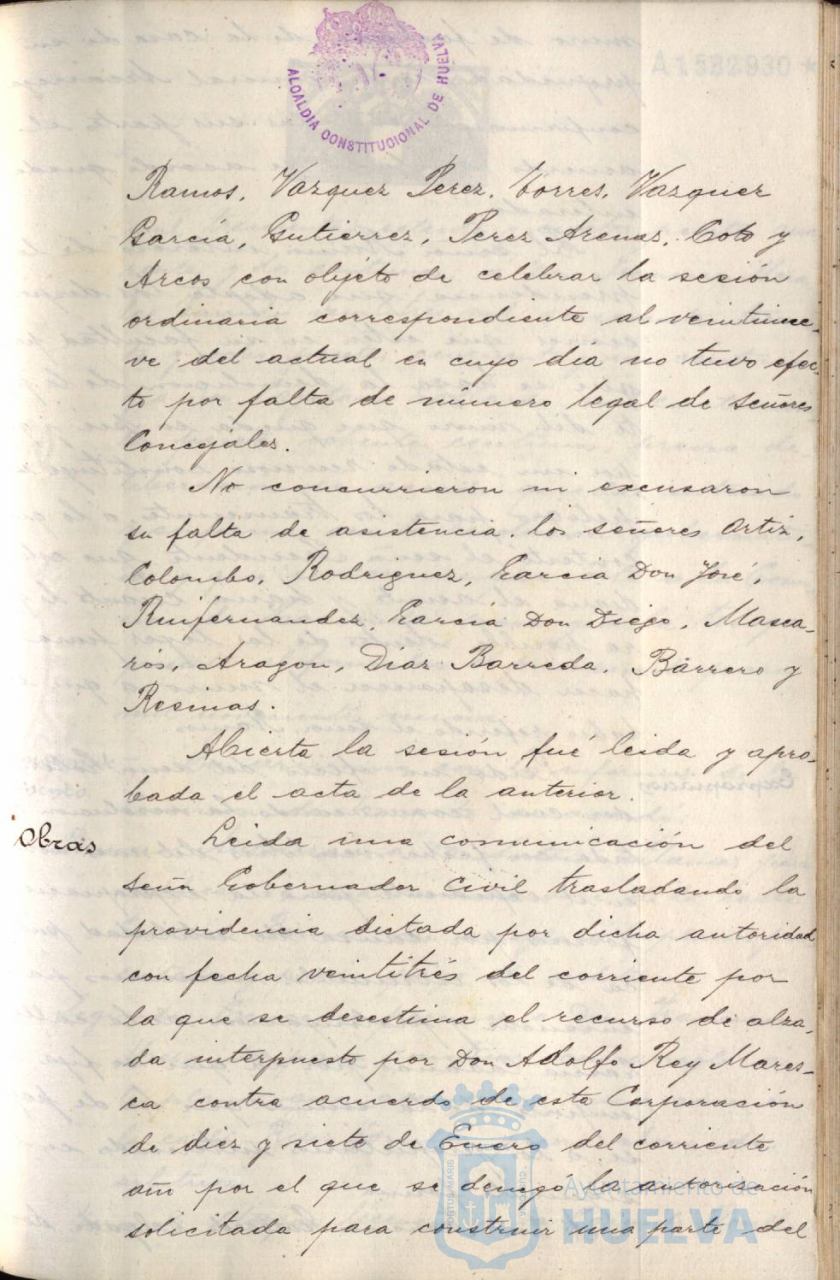 ALCALDIA CONSTITUCIONAL DE HUELVA
A1582930 *
Ramos, Vazquez Perez, Torres, Vazquez
García, Gutierrez, Perez Arenas, Coto y
Arcos con objéto de celebrar la sesión
ordinaria correspondiente al veintinue-
ve del actual en cuyo día no tuvo efec-
to por falta de número legal de señores
Concejales.
No concurrieron ni excusaron
su falta de asistencia los señores Ortiz,
Colombo, Rodriguez, García Don José,
Ruifernandez, García Don Diego, Masca-
rós, Aragon, Diaz Barreda, Bárrero y
Resinas.
Abierta la sesión fué leida y apro-
bada el acta de la anterior.
Obras
Leida una comunicación del
señor Gobernador Civil trasladando la
providencia dictada por dicha autoridad
con fecha veintitrés del corriente por
la que se desestima el recurso de alza-
da interpuesto por Don Adolfo Rey Mares-
ca contra acuerdo de esta Corporación
de diez y siete de Enero del corriente
año por el que se denegó la autorisación
solicitada para construir una parte del
Ayuntamiento de
HUELVA